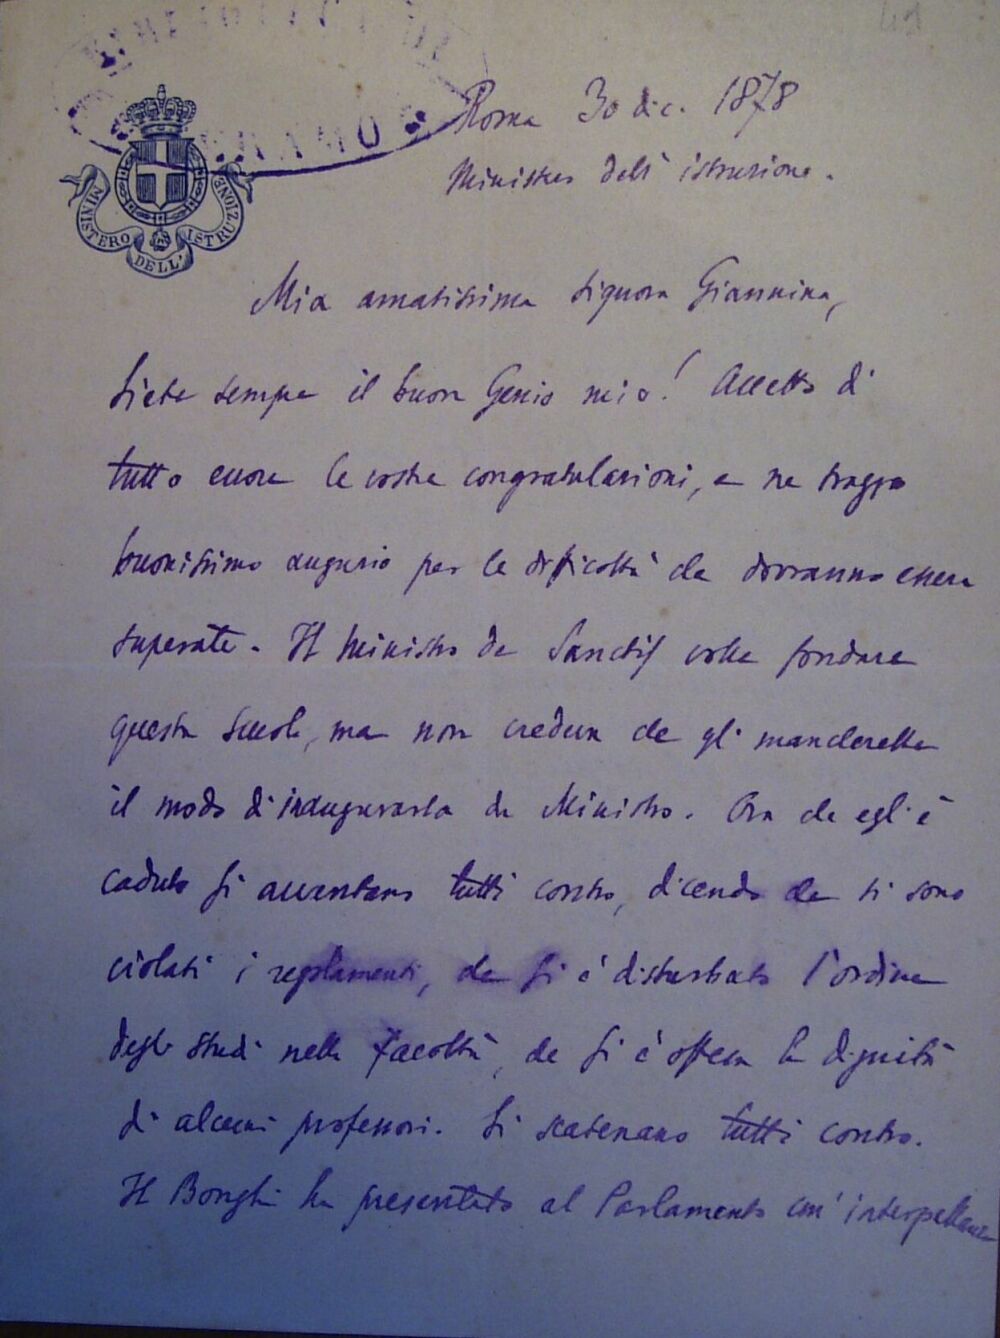 41
Roma 30 dic. 1878
Ministero dell'istruzione.
MINISTERO DELL' ISTRUZIONE
Mia amatissima signora Giannina,
Siete sempre il buon Genio mio! Accetto di
tutto cuore le vostre congratulazioni, e ne traggo
buonissimo augurio per le difficoltà che dovranno essere
superate. Il Ministro de Sanctis volle fondare
questa scuola, ma non credeva che gli mancherebbe
il modo di inaugurarla da Ministro. Ora che egli è
caduto si avventano tutti contro, dicendo che si sono
violati i regolamenti, che si è disturbato l'ordine
degli studi nelle Facoltà, che si è offesa la dignità
di alcuni professori. Si scatenano tutti contro.
Il Bonghi ha presentato al Parlamento un'interpellanza